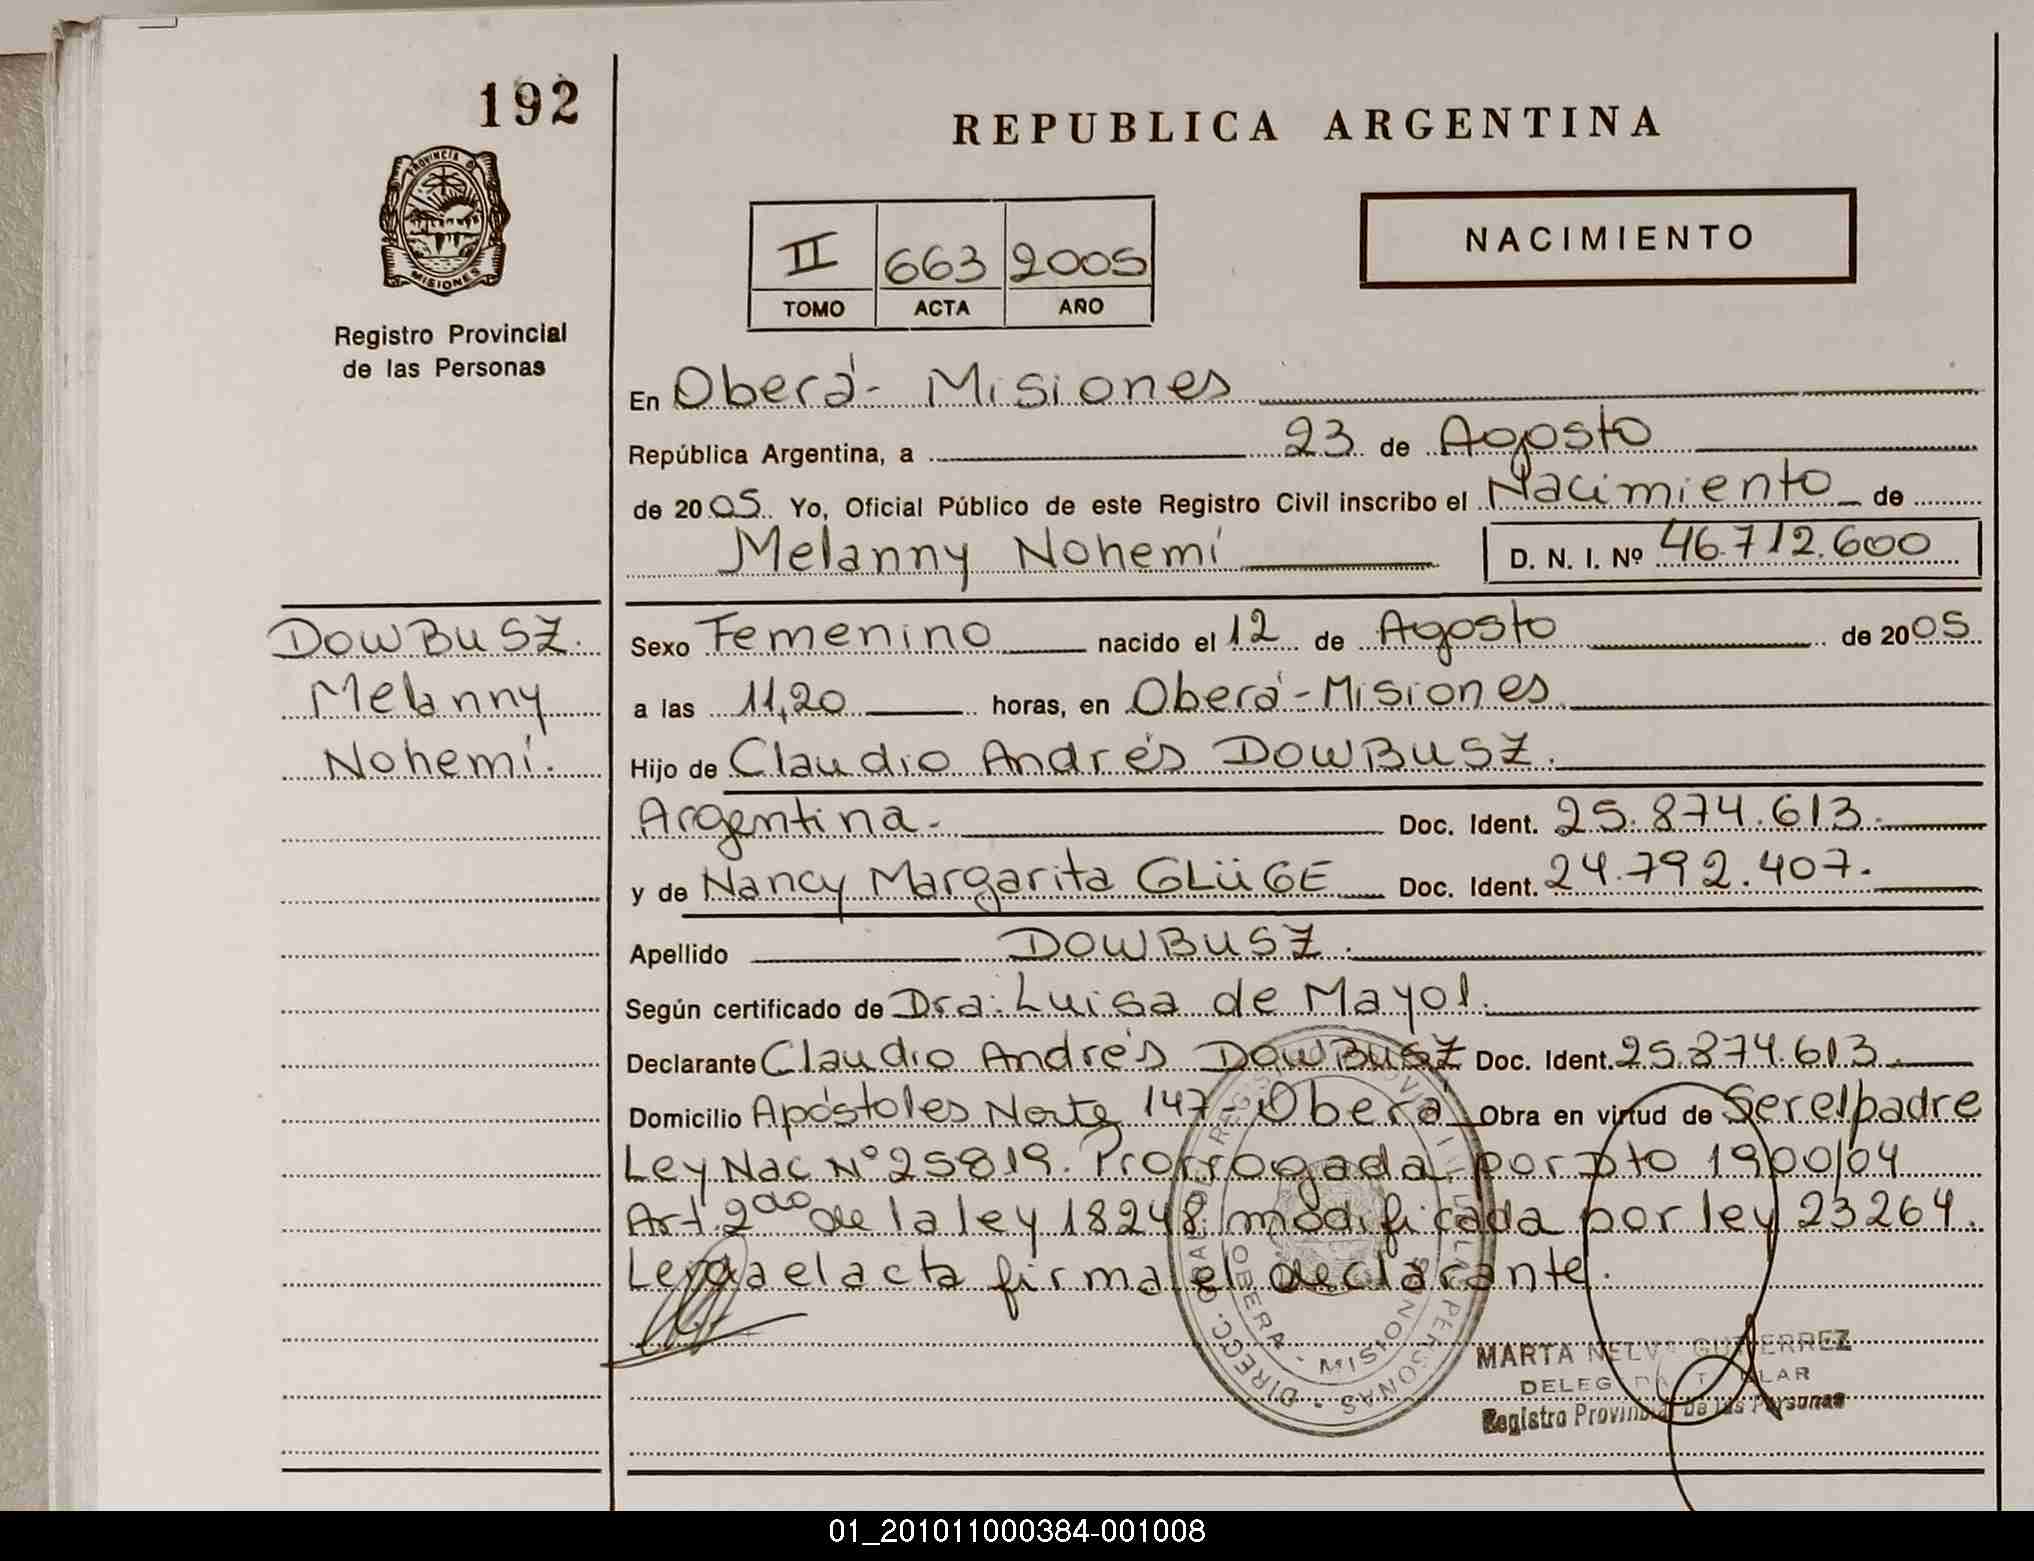 192
REPUBLICA ARGENTINA
PROVINCIA DE
MISIONES
Registro Provincial
de las Personas
NACIMIENTO
II 663 2005
TOMO ACTA AÑO
En Oberá - Misiones
República Argentina, a 23 de Agosto
de 2005 Yo, Oficial Público de este Registro Civil inscribo el Nacimiento de
Melanny Nohemí D. N. I. Nº 46.712.600
DOWBUSZ.
Melanny
Nohemí.
Sexo Femenino nacido el 12 de Agosto de 2005
a las 11,20 horas, en Oberá - Misiones
Hijo de Claudio Andrés DOWBUSZ.
Argentina.- Doc. Ident. 25.874.613.
y de Nancy Margarita GLÜGE Doc. Ident. 24.792.407.
Apellido DOWBUSZ.
Según certificado de Dra: Luisa de Mayol.
Declarante Claudio Andrés DOWBUSZ Doc. Ident. 25.874.613.
Domicilio Apóstoles Norte 147 - Oberá Obra en virtud de Ser el padre
Ley Nac Nº 25819. Prorrogada por Dto 1900/04
Art. 2do de la ley 18248 modificada por ley 23264.
Leida el acta firma el declarante.
OBERA - MISIONES
MARTA NELVA GUTIERREZ
DELEGADA TITULAR
Registro Provincial de las Personas
01_201011000384-001008